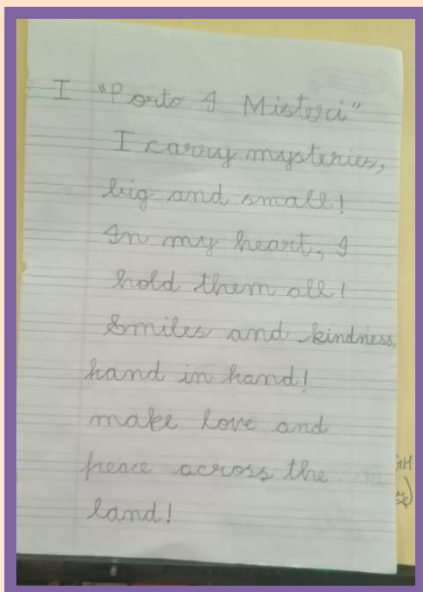 I "Porto I Misteri"
I carry mysteries,
big and small!
In my heart, I
hold them all!
Smiles and kindness,
hand in hand!
make love and
peace across the
land!